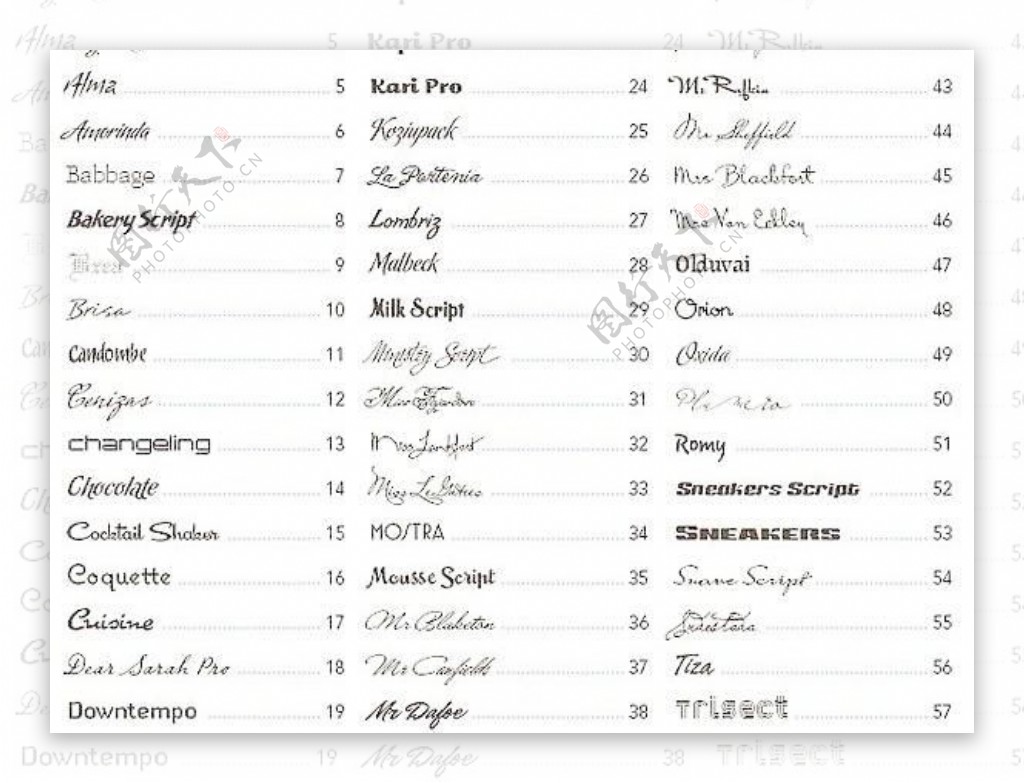 Alma 5
Amorinda 6
Babbage 7
Bakery Script 8
Brea 9
Brisa 10
Candombe 11
Cenizas 12
changeling 13
Chocolate 14
Cocktail Shaker 15
Coquette 16
Cuisine 17
Dear Sarah Pro 18
Downtempo 19
Kari Pro 24
Koziupack 25
La Portenia 26
Lombriz 27
Malbeck 28
Milk Script 29
Ministry Script 30
31
Miss Lankfort 32
Miss LeGatees 33
MOSTRA 34
Mousse Script 35
Mr Blaketon 36
Mr Canfields 37
Mr Dafoe 38
Mr Rafkin 43
Mr Sheffield 44
Mrs Blackfort 45
Mrs Von Eckley 46
Olduvai 47
Orion 48
Oxida 49
50
Romy 51
Sneakers Script 52
SNEAKERS 53
Suave Script 54
55
Tiza 56
Trisect 57
图行天下
PHOTOPHOTO.CN
图行天下
PHOTOPHOTO.CN